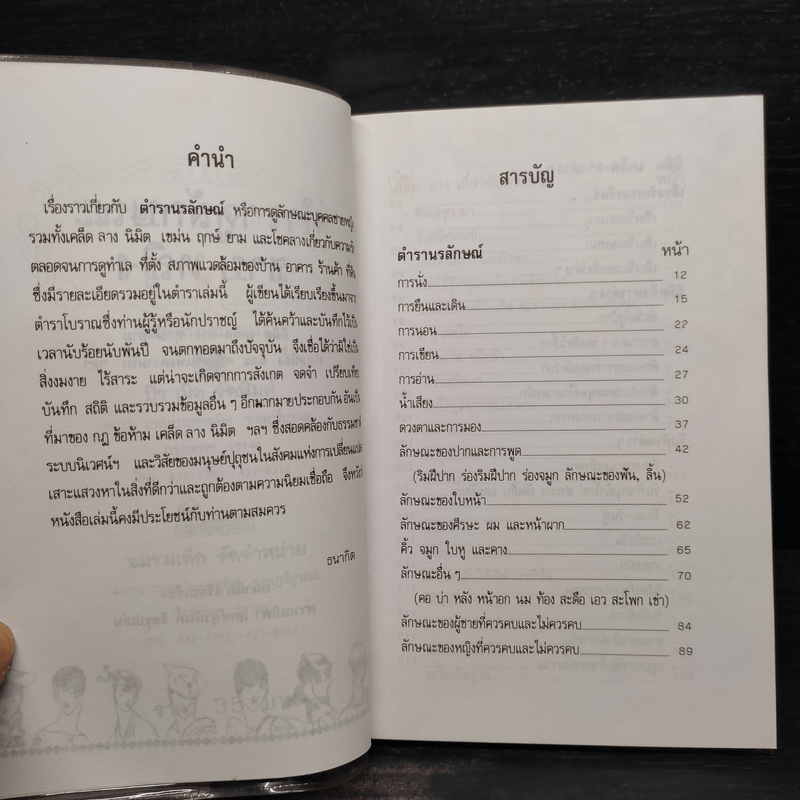 คำนำ
เรื่องราวเกี่ยวกับ ตำรานรลักษณ์ หรือการดูลักษณะบุคคลชายหญิง
รวมทั้งเคล็ด ลาง นิมิต เขม่น ฤกษ์ ยาม และโชคลางเกี่ยวกับความ
ตลอดจนการดูทำเล ที่ตั้ง สภาพแวดล้อมของบ้าน อาคาร ร้านค้า
ซึ่งมีรายละเอียดรวมอยู่ในตำราเล่มนี้ ผู้เขียนได้เรียบเรียงขึ้นมาจาก
ตำราโบราณซึ่งท่านผู้รู้หรือนักปราชญ์ ได้ค้นคว้าและบันทึกไว้เป็น
เวลานับร้อยนับพันปี จนตกทอดมาถึงปัจจุบัน จึงเชื่อได้ว่ามิใช่เป็น
สิ่งงมงาย ไร้สาระ แต่น่าจะเกิดจากการสังเกต จดจำ เปรียบเทียบ
บันทึก สถิติ และรวบรวมข้อมูลอื่น ๆ อีกมากมายประกอบกัน อันเป็น
ที่มาของ กฎ ข้อห้าม เคล็ด ลาง นิมิต ฯลฯ ซึ่งสอดคล้องกับธรรมชาติ
ระบบนิเวศน์ฯ และวิสัยของมนุษย์ปุถุชนในสังคมแห่งการเปลี่ยนแปลง
เสาะแสวงหาในสิ่งที่ดีกว่าและถูกต้องตามความนิยมเชื่อถือ จึงหวังว่า
หนังสือเล่มนี้คงมีประโยชน์กับท่านตามสมควร
ธนากิต
สารบัญ
ตำรานรลักษณ์ หน้า
การนั่ง 12
การยืนและเดิน 15
การนอน 22
การเขียน 24
การอ่าน 27
น้ำเสียง 30
ดวงตาและการมอง 37
ลักษณะของปากและการพูด 42
(ริมฝีปาก ร่องริมฝีปาก ร่องจมูก ลักษณะของฟัน, ลิ้น)
ลักษณะของใบหน้า 52
ลักษณะของศีรษะ ผม และหน้าผาก 62
คิ้ว จมูก ใบหู และคาง 65
ลักษณะอื่น ๆ 70
(คอ บ่า หลัง หน้าอก นม ท้อง สะดือ เอว สะโพก เข่า)
ลักษณะของผู้ชายที่ควรคบและไม่ควรคบ 84
ลักษณะของหญิงที่ควรคบและไม่ควรคบ 89